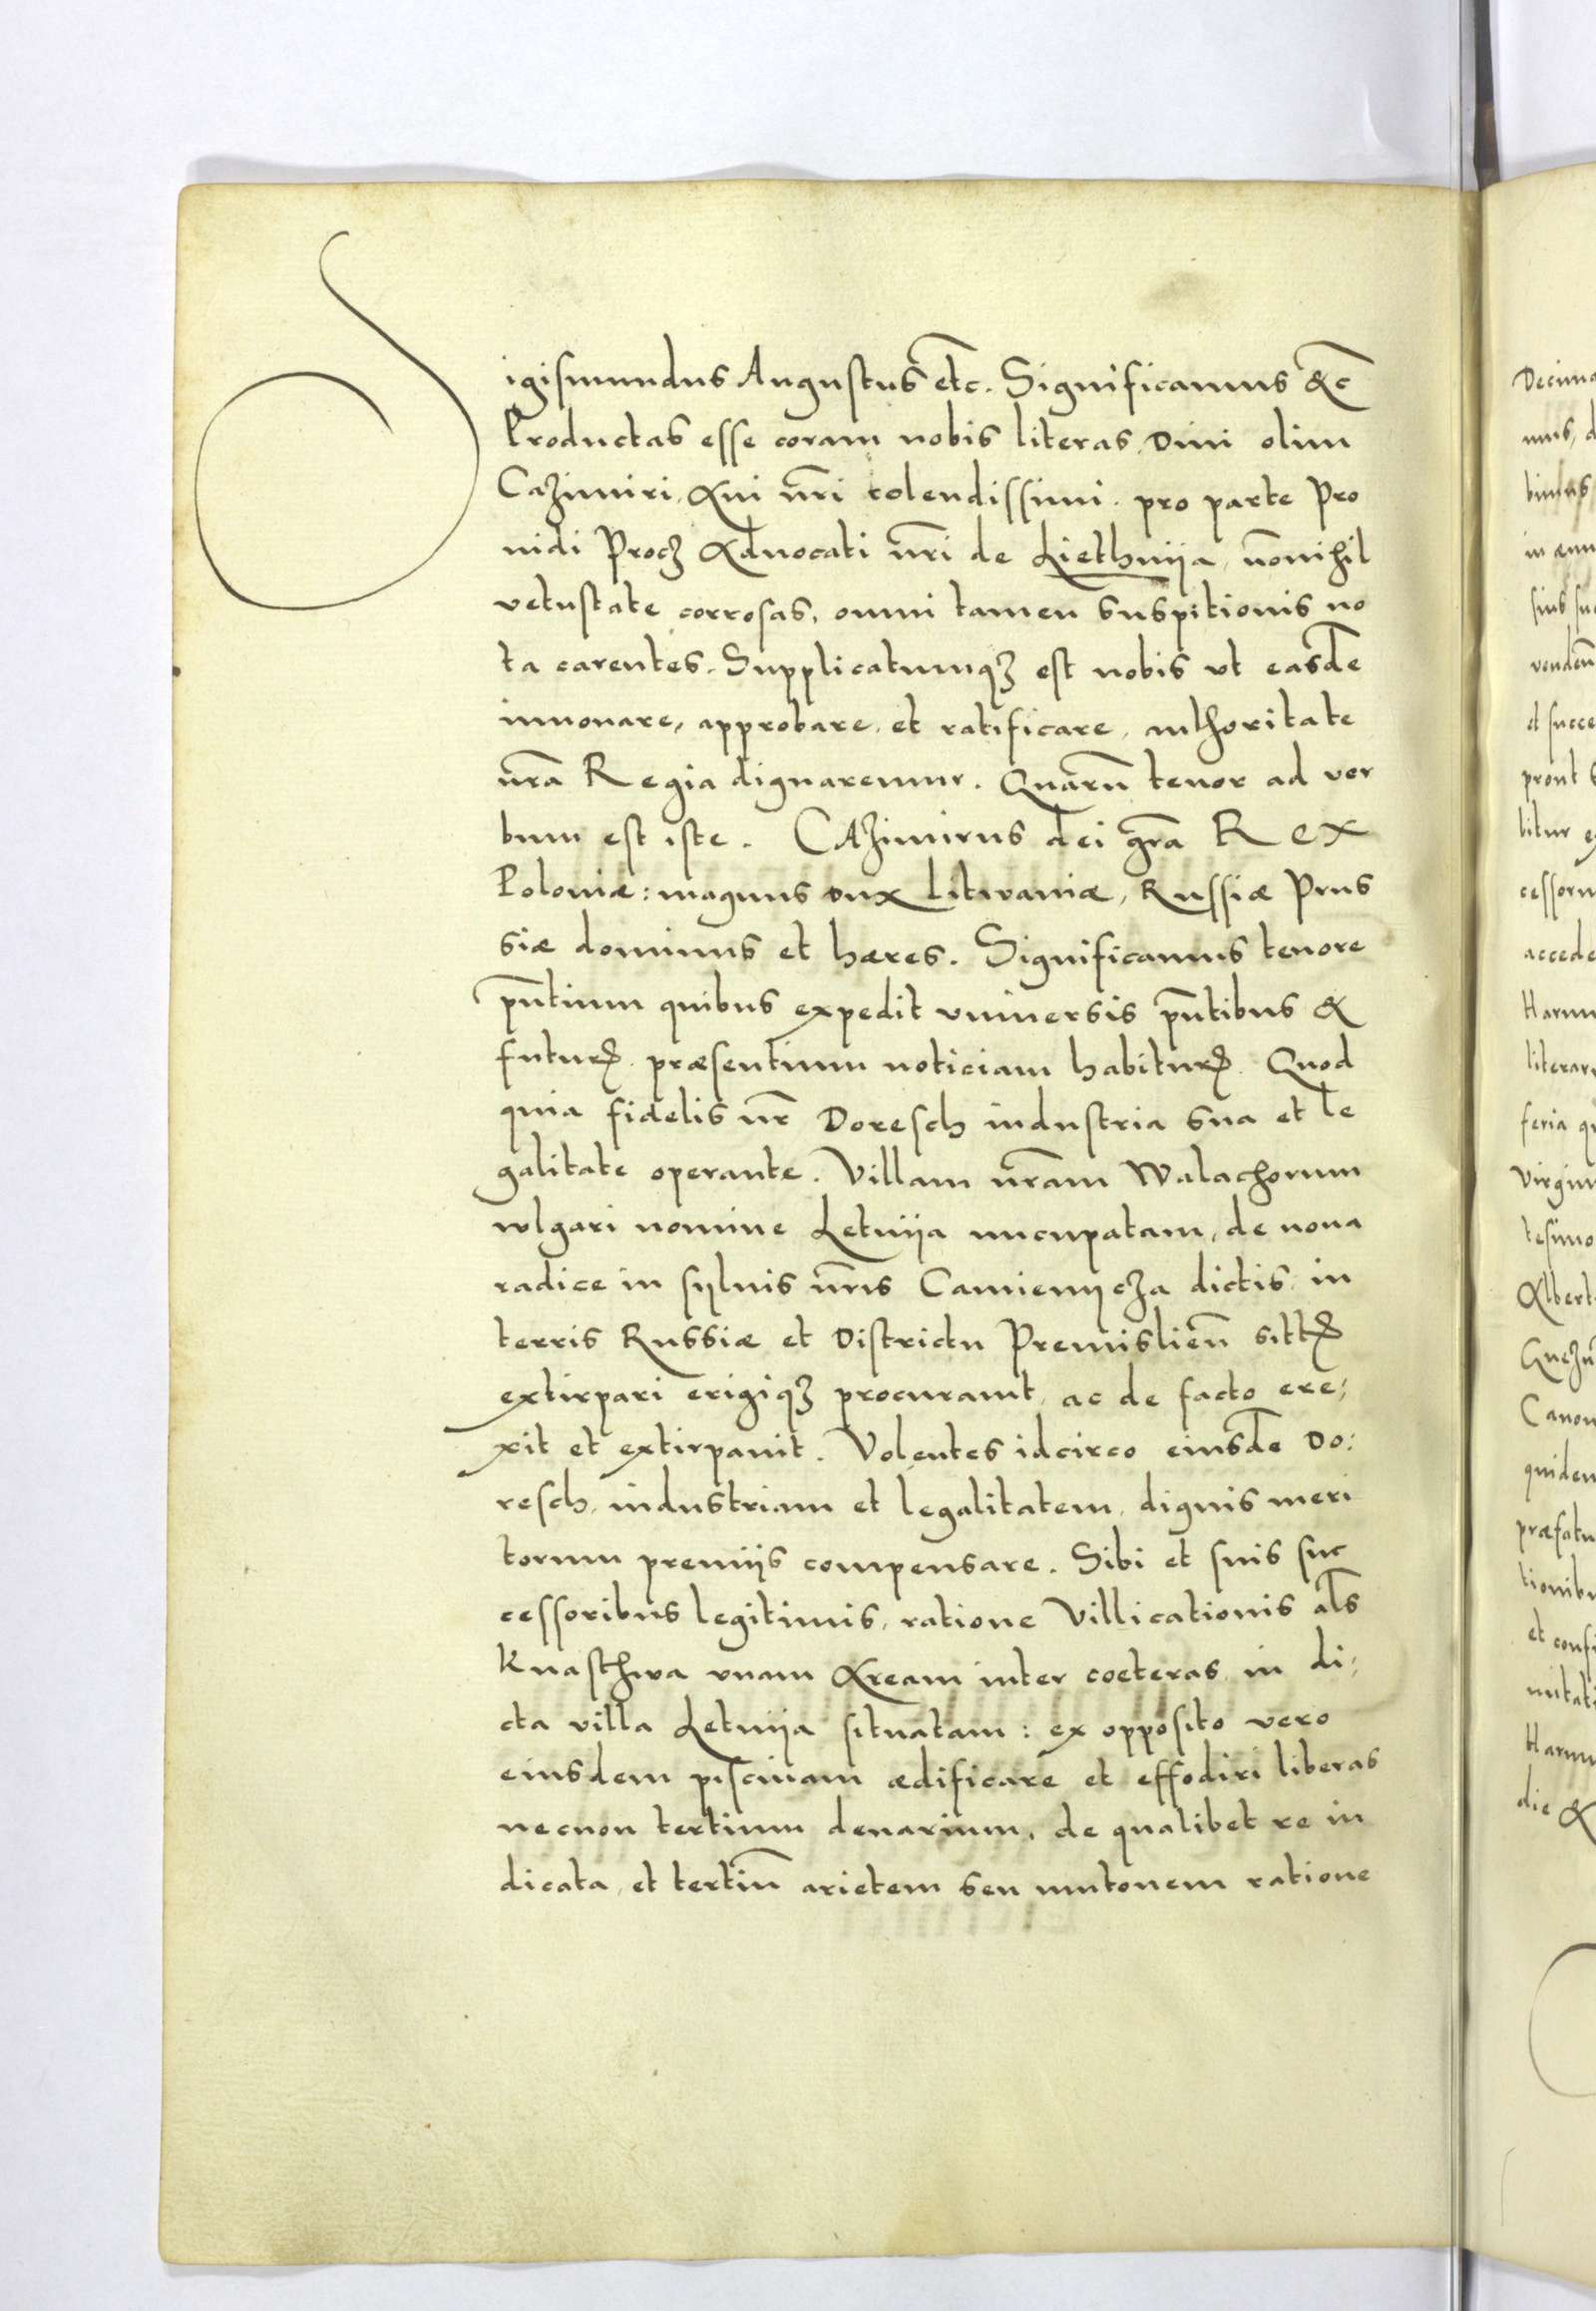 Sigismundus Augustus etc. Significamus &c̄
Productas esse coram nobis literas Diui olim
Cazimiri Aui nr̄i colendissimi. pro parte Pro
uidi Procz Aduocati nr̄i de Liethnija, nōnihil
vetustate corrosas, omni tamen suspitionis no
ta carentes. Supplicatumqȝ est nobis vt easdē
innouare, approbare, et ratificare, authoritate
nr̄a Regia dignaremur. Quarū tenor ad ver
bum est iste. CAzimirus dei gr̄a Rex
Poloniæ: magnus dux Litwaniæ, Russiæ Prus
siæ dominus et hæres. Significamus tenore
pn̄tium quibus expedit vniuersis pn̄tibus &
futurꝭ præsentium noticiam habiturꝭ. Quod
quia fidelis nr̄ Doresch industria sua et le
galitate operante. Villam nr̄am Walachorum
wlgari nomine Letnija nucupatam, de noua
radice in syluis nr̄is Camienycza dictis in
terris Russiæ et Districtu Premisliēn sittꝭ
extirpari erigiqȝ procurauit, ac de facto ere;
xit et extirpauit. Volentes idcirco eiusdē Do:
resch industriam et legalitatem, dignis meri
torum premijs compensare. Sibi et suis suc
cessoribus legitimis, ratione Villicationis al̄s
Knasthwa vnam Aream inter coeteras in di;
cta villa Letnija situatam: ex opposito vero
eiusdem piscinam ædificare et effodiri liberas
necnon tertium denarium, de qualibet re iu
dicata, et tertiū arietem seu mutonem ratione
Decima
mus, d
bimus
sius su
vendēn
et succe
prout s
bitur ex
cessoru
accede
Harum
literaru
feria qu
Virgin
tesimo
Albert
Gnezn
Canon
quidem
præfatu
tionibu
et confi
Harum
die &